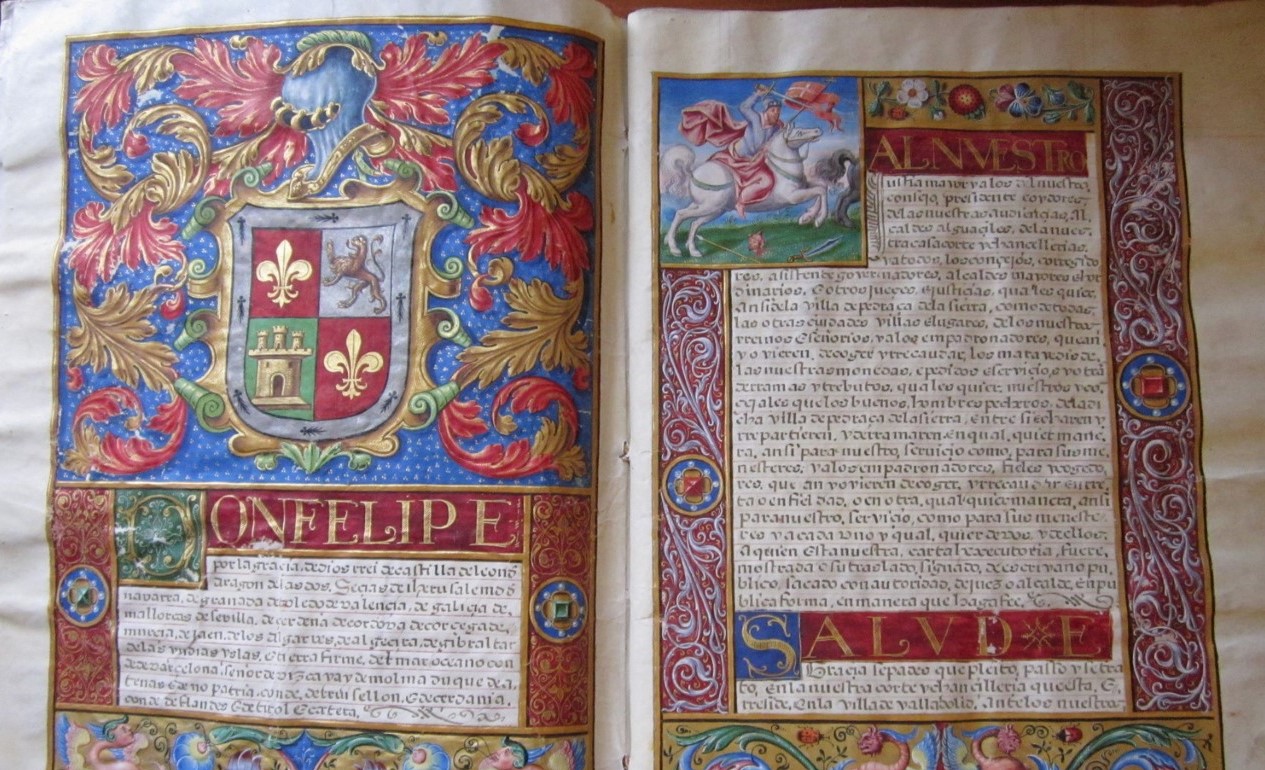 DON FELIPE
por la gracia, de dios rrei de castilla de leon d
aragon delas dos, Secias de iherusalem d
navarra, de granada de toledo de valencia, de galicia de,
mallorcas de sevilla, de cerdena de cordova de corcega de,
murcia, de jaen, delos algarves, de algecira, de gibraltar
delas yndias yslas, e tierra firme, del mar oceano con
de de varcelona, señor de vizcaya y de molina duque de a,
tenas e de neopatria, conde, de rruisellon, e de cerdania,
conde de flandes e de tirol ecetera,
AL NVESTRO
justicia mayor y alos del nuestro,
consejo, presidente e oydores,
delas nuestras audiencias, Al
caldes alguaciles, dela nues,
tra casa corte y chancillerias,
y atodos, los concejos, corregido
res, asistente governadores, alcaldes mayores e or
dinarios, e otros jueces, e justicias, quales quier,
Ansi dela villa de pedraça dela sierra, como de todas,
las otras ciudades villas e lugares, delos nuestros,
rreinos e señorios, y alos empadronadores, que an,
y ovieren, de coger y rrecaudar, los maravedis de,
las nuestras monedas, e pedidos e servicio, y otra
derramas y tributos, quales quier, nuestros
que los buenos, hombres pecheros, dela di
cha villa de pedraça dela sierra, entre si echaren y,
rrepartieren, y derramaren En qual, quier mane,
ra, ansi para nuestro, servicio como, para sus me,
nesteres, y alos empadronadores, fieles
que an y ovieren de coger, y rrecaudar En rren
ta o en fieldad, o en otra, qual quier manera, ansi
para nuestro, servicio, como para sus meneste
res y a cada vno y qual, quier de vos, y dellos,
A quien Esta nuestra, carta Executoria, fuere,
mostrada o su traslado, signado, de escrivano pu,
blico, sacado con autoridad, de juez o alcalde, En pu
blica forma, en manera que haga fee,
SALVD E
gracia sepades que pleito, paso y se trato
En la nuestra corte y chancilleria que esta, E,
rreside, En la villa de valladolid, ante los nuestros